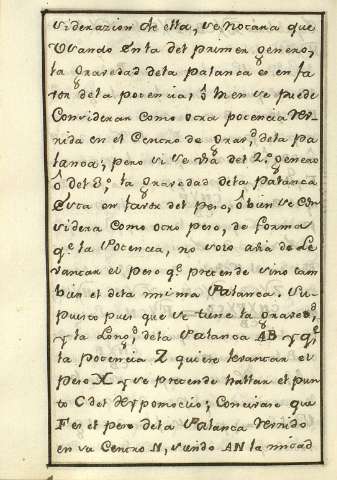 siderazion de ella, se notara que
Usando en la del primer genero,
la gravedad dela palanca es en fa
vor dela potencia, ô bien se puede
Considerar como otra potencia Reu-
nida en el Centro de grav.d dela pa
lanca; pero si se usa del 2.º genero
ô del 3.º, la gravedad dela Palanca
esta en favor del peso, ô bien se con
sidera como otro peso, de forma
q.e la Potencia, no solo abia de Le
vantar el peso q.e pretende sino tam
bien el dela misma Palanca. Su-
puesto pues que se tiene la graved.d
y la Long.d dela Palanca AB y q.e
la potencia Z quiere levantar el
peso X y se pretende hallar el pun
to C del Hypomoclio; Concivase que
F es el peso dela Palanca Reunido
en su Centro N, siendo AN la mitad